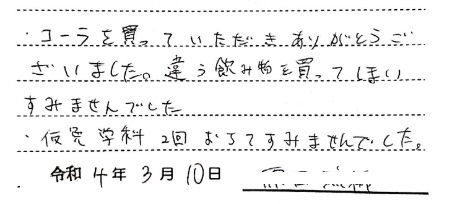 ・コーラを買っていただきありがとうご
ざいました。違う飲み物を買ってしまい
すみませんでした
・仮免学科2回おちてすみませんでした。
令和4年3月10日